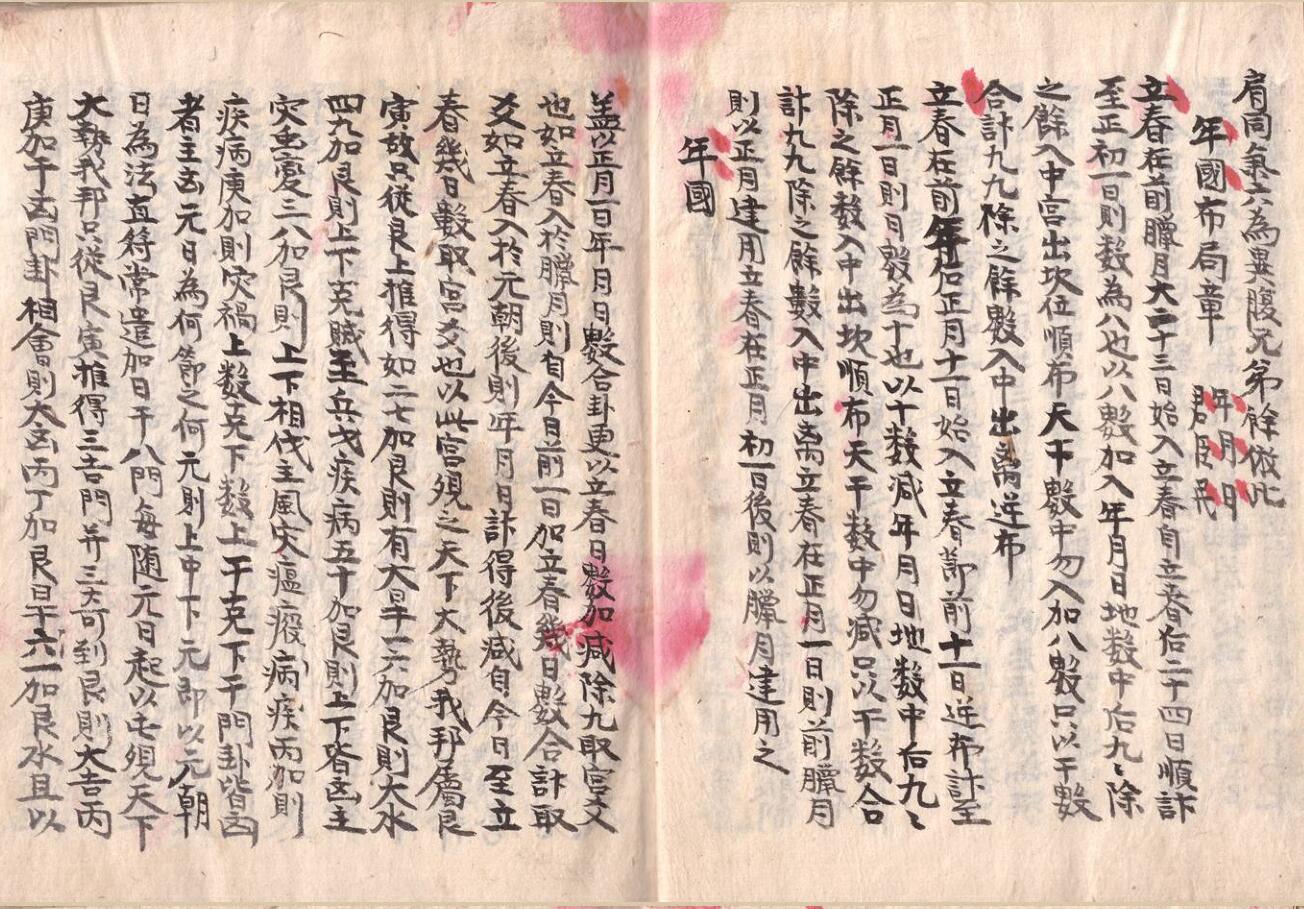 肩同氣六為異腹兄弟餘倣此
年國布局章　年月日
君臣民
立春在前臘月大二十三日始入立春自立春后二十四日順計
至正初一日則数為八也以八數加入年月日地数中后九〻除
之餘入中宮出坎位順布天干數中勿入加八數只以干數
合計九九除之餘數入中出离逆布
立春在前年后正月十一日始入立春節前十一日逆布計至
正月一日則日數為十也以十数减年月日地數中后九〻
除之餘数入中出坎順布天干数中勿减只以干数合
計九九除之餘數入中出离立春在正月一日則前臘月
則以正月建用立春在正月初一日後則以臘月建用之
年國
盖以正月一日年月日數合卦更以立春日數加减除九取宮爻
也如立春入於臘月則自今日前一日加立春幾日數合計取
爻如立春入於元朝後則年月日計得後减自今日至立
春幾日數取宮爻也以此宮須之天下大勢我邦屬艮
寅故只從艮上推得如二七加艮則有大旱一六加艮則大水
四九加艮則上下克賊主兵戈疾病五十加艮則上下皆凶主
灾虫變三八加艮則上下相伐主風灾瘟瘢病疾丙加則
疾病庚加則灾禍上数克下数上干克下干門卦皆凶
者主凶元日為何節之何元則上中下元即以元朝
日為法直符常遣加日干八門每随元日起以屯視天下
大勢我邦只從艮寅推得三吉門并三奇到艮則大吉丙
庚加干凶門卦相會則大凶丙丁加艮日干六一加艮水且以